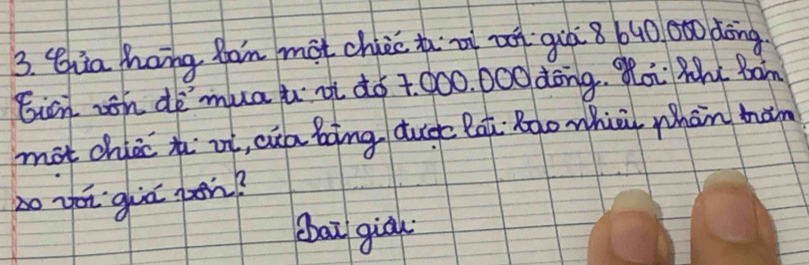 3. Cửa hàng bán một chiếc ti vi với giá 8 640.000 đồng.
Tiền vốn để mua ti vi đó 7.000.000 đồng. Hỏi khi bán
một chiếc ti vi, cửa hàng được lãi bao nhiêu phần trăm
so với giá vốn?
Bài giải